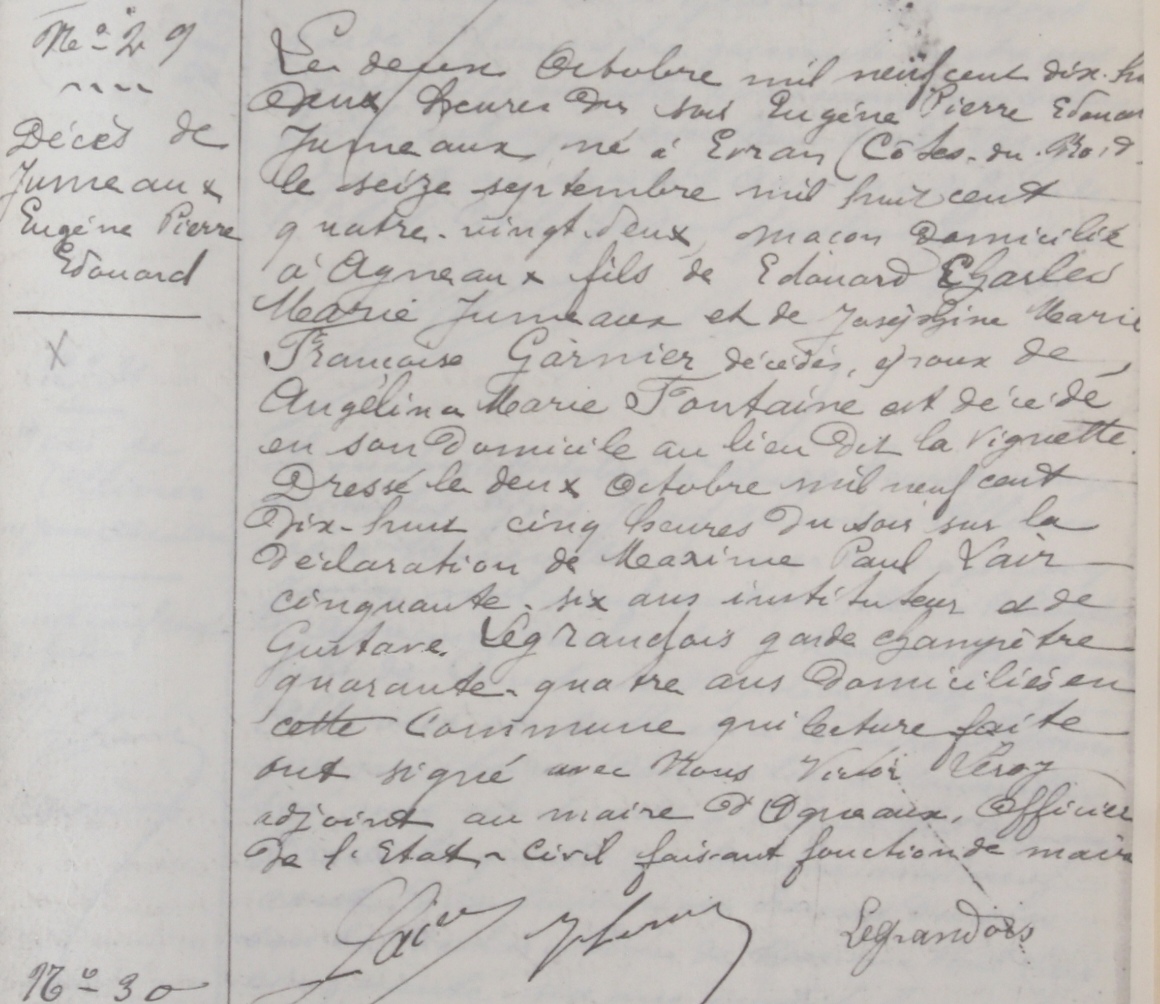 No 29
Décès de
Jumeaux
Eugéne Pierre
Edouard
Le deux Octobre mil neuf cent dix-hu
deux heures du soir Eugéne Pierre Edouar
Jumeaux, né à Evran (Côtes-du-Nord
le seize septembre mil huit cent
quatre-vingt-deux, macon domicilié
à Agneaux fils de Edouard Charles
Marie Jumeaux et de Joséphine Marie
Francoise Garnier décédés, époux de
Angélina Marie Fontaine est décédé
en son domicile au lieu dit la Vignette.
Dressé le deux Octobre mil neuf cent
dix-huit cinq heures du soir sur la
déclaration de Maxime Paul Lair
cinquante-six ans instituteur et de
Gustave Legrandois garde champètre
quarante-quatre ans domiciliés en
cette Commune qui lecture faite
ont signé avec Nous Victor Leroy
adjoint au maire d'Agneaux, Officier
de l'Etat-Civil faisant fonction de maire
Lair Leroy Legrandois
No 30